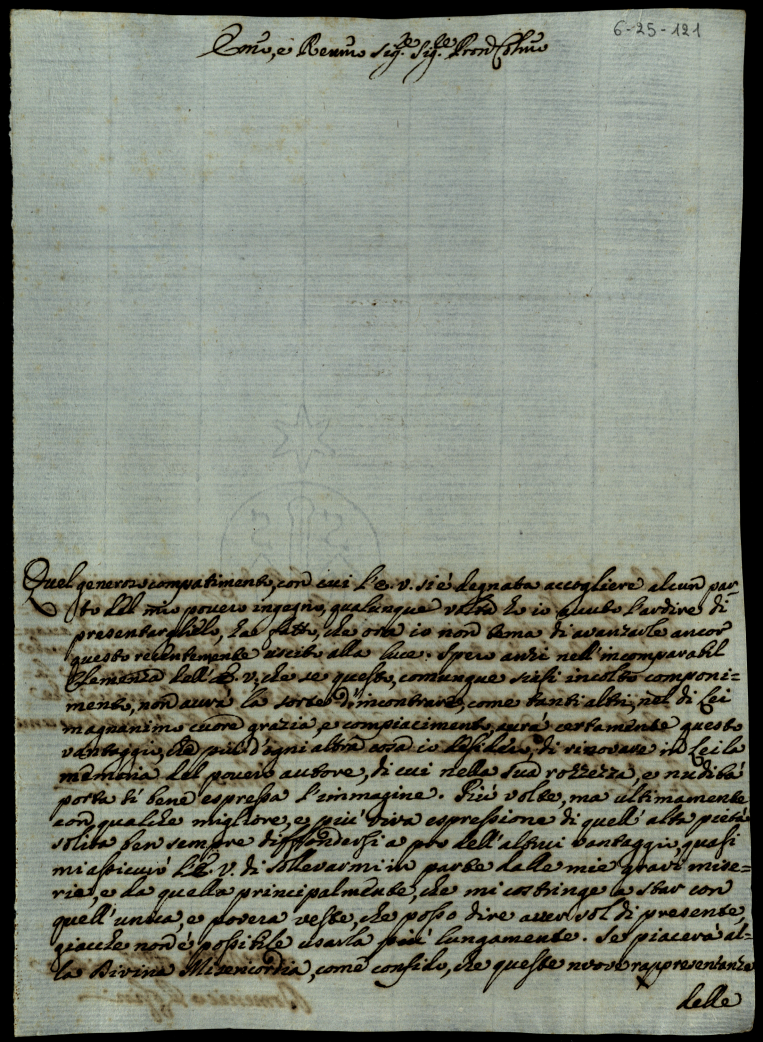 6-25-121
Emo, e Revmo Sig.re Sig.re Pron Colmo
Quel generoso compatimento, con cui l'E. V. si è degnata accogliere alcun par-
to del mio povero ingegno, qualunque volta ho io avuto l'ardire di
presentarglielo, ha fatto, che ora io non tema di avanzarle ancor
questo recentemente uscito alla luce. Spero anzi nell'incomparabil
Clemenza dell'E. V., che se questo, comunque siasi incolto componi-
mento, non avrà la sorte d'incontrare, come tanti altri, nel di Lei
magnanimo cuore grazia, e compiacimento, avrà certamente questo
vantaggio, che più d'ogni altra cosa io desidero, di rinovare in Lei la
memoria del povero autore, di cui nella sua rozzezza, e nudità
porta sì bene espressa l'immagine. Più volte, ma ultimamente
con qualche migliore, e più viva espressione di quell'alta pietà
solita ben sempre diffondersi a pro dell'altrui vantaggio, quasi
mi assicurò l'E. V. di sollevarmi in parte dalle mie gravi mise=
rie, e da quella principalmente, che mi costringe a star con
quell'unica, e povera veste, che posso dire aver sol di presente,
giacche non è possibile usarla più lungamente. Se piacerà al=
la Divina Misericordia, come confido, che queste nuove rappresentanze
delle